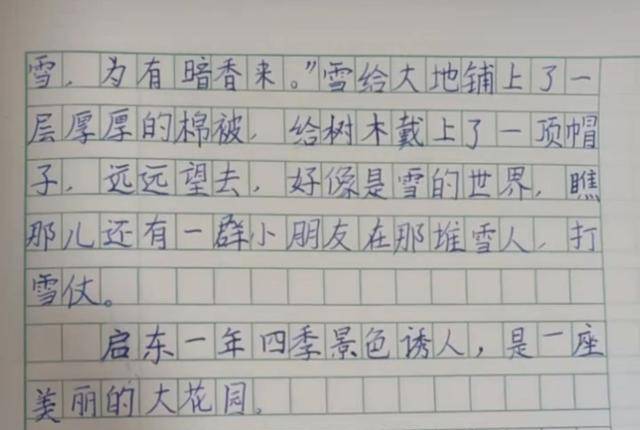 雪，为有暗香来。”雪给大地铺上了一
层厚厚的棉被，给树木戴上了一顶帽
子，远远望去，好像是雪的世界，瞧
那儿还有一群小朋友在那堆雪人，打
雪仗。
启东一年四季景色诱人，是一座
美丽的大花园。